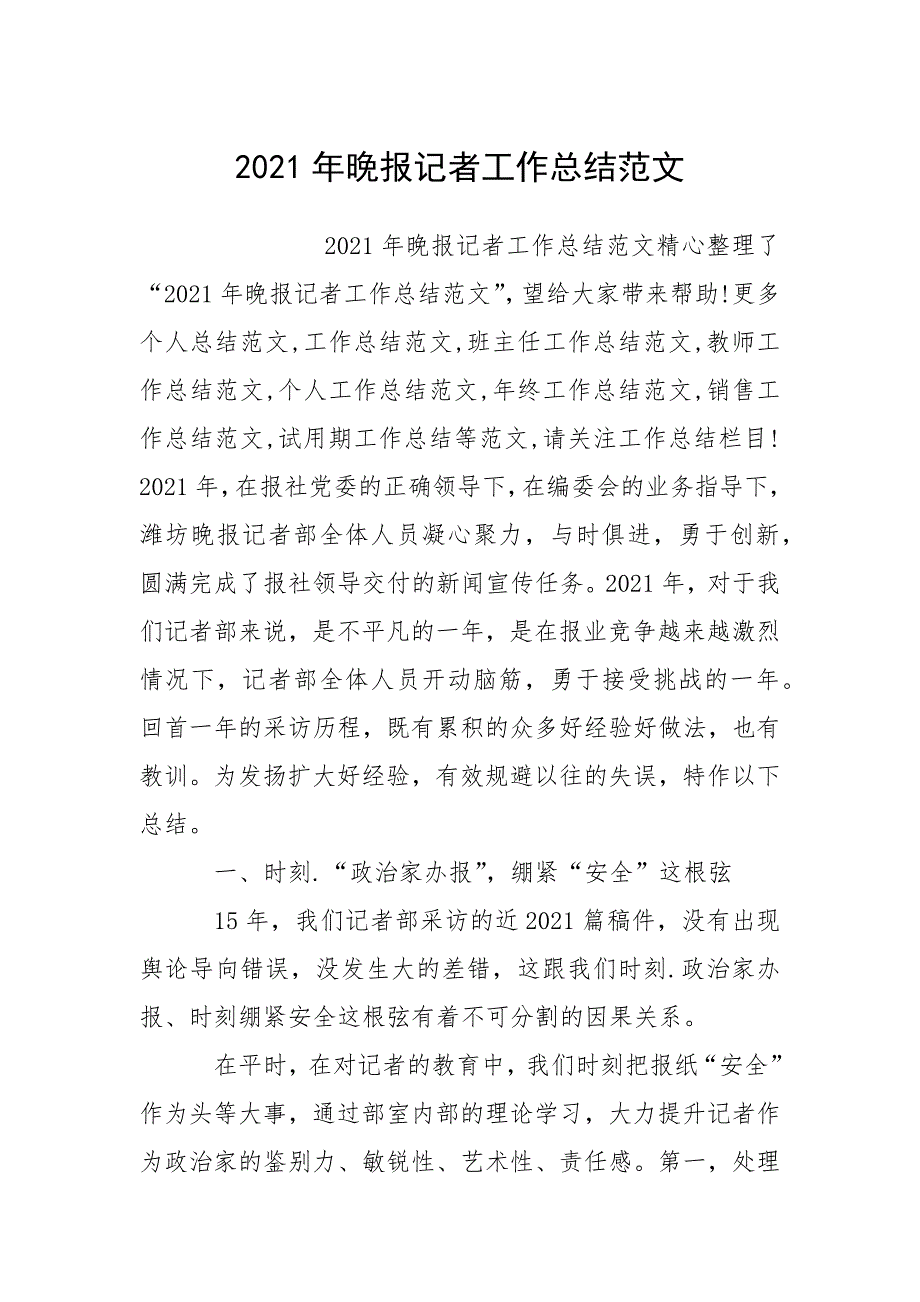 2021 年晚报记者工作总结范文
2021 年晚报记者工作总结范文精心整理了
“2021 年晚报记者工作总结范文”，望给大家带来帮助!更多
个人总结范文,工作总结范文,班主任工作总结范文,教师工
作总结范文,个人工作总结范文,年终工作总结范文,销售工
作总结范文,试用期工作总结等范文,请关注工作总结栏目!
2021 年，在报社党委的正确领导下，在编委会的业务指导下，
潍坊晚报记者部全体人员凝心聚力，与时俱进，勇于创新，
圆满完成了报社领导交付的新闻宣传任务。2021 年，对于我
们记者部来说，是不平凡的一年，是在报业竞争越来越激烈
情况下，记者部全体人员开动脑筋，勇于接受挑战的一年。
回首一年的采访历程，既有累积的众多好经验好做法，也有
教训。为发扬扩大好经验，有效规避以往的失误，特作以下
总结。
一、时刻.“政治家办报”，绷紧“安全”这根弦
15 年，我们记者部采访的近 2021 篇稿件，没有出现
舆论导向错误，没发生大的差错，这跟我们时刻.政治家办
报、时刻绷紧安全这根弦有着不可分割的因果关系。
在平时，在对记者的教育中，我们时刻把报纸“安全”
作为头等大事，通过部室内部的理论学习，大力提升记者作
为政治家的鉴别力、敏锐性、艺术性、责任感。第一，处理